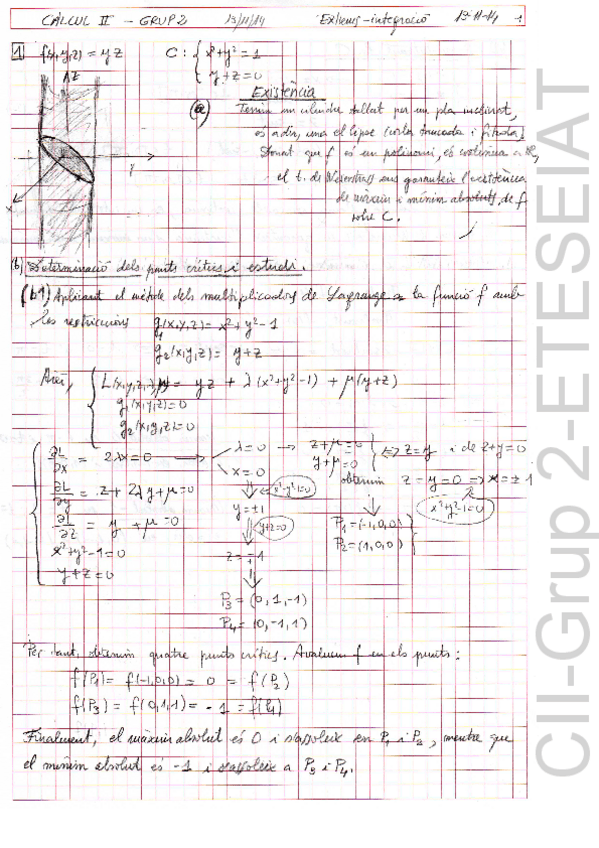 CÀLCUL II - GRUP 2 13/11/14 Extrems-integració 13-11-14 1
1 f(x,y,z) = yz C: { x²+y²=1
y+z=0
Z
Y
X
Existència
(a) Tenim un cilindre tallat per un pla inclinat,
és a dir, una el·lipse (corba tancada i fitada).
Donat que f és un polinomi, és contínua a
el t. de Weierstrass ens garanteix l'existència
de màxim i mínim absoluts, de f
sobre C.
(b) Determinació dels punts crítics i estudi.
(b1) Aplicant el mètode dels multiplicadors de Lagrange a la funció f amb
les restriccions g₁(x,y,z) = x²+y²-1
g₂(x,y,z) = y+z
Així, { L(x,y,z,λ,μ) = yz + λ(x²+y²-1) + μ(y+z)
g₁(x,y,z)=0
g₂(x,y,z)=0
∂L/∂x = 2λx=0 → λ=0 → z+μ=0 } ⇔ z=y i de z+y=0
y+μ=0
x=0 obtenim z=y=0 ⇒ x=±1
x²+y²-1=0
∂L/∂y = z+2λy+μ=0
y=±1 x²+y²-1=0
∂L/∂z = y +μ=0 y+z=0 P₁=(-1,0,0)
P₂=(1,0,0)
x²+y²-1=0 z=∓1
y+z=0
P₃=(0,1,-1)
P₄=(0,-1,1)
Per tant, obtenim quatre punts crítics. Avaluem f en els punts:
f(P₁)= f(-1,0,0) = 0 = f(P₂)
f(P₃) = f(0,1,1) = -1 = f(P₄)
Finalment, el màxim absolut és 0 i s'assoleix en P₁ i P₂, mentre que
el mínim absolut és -1 i s'assoleix a P₃ i P₄.
CII-Grup 2-ETESEIAT